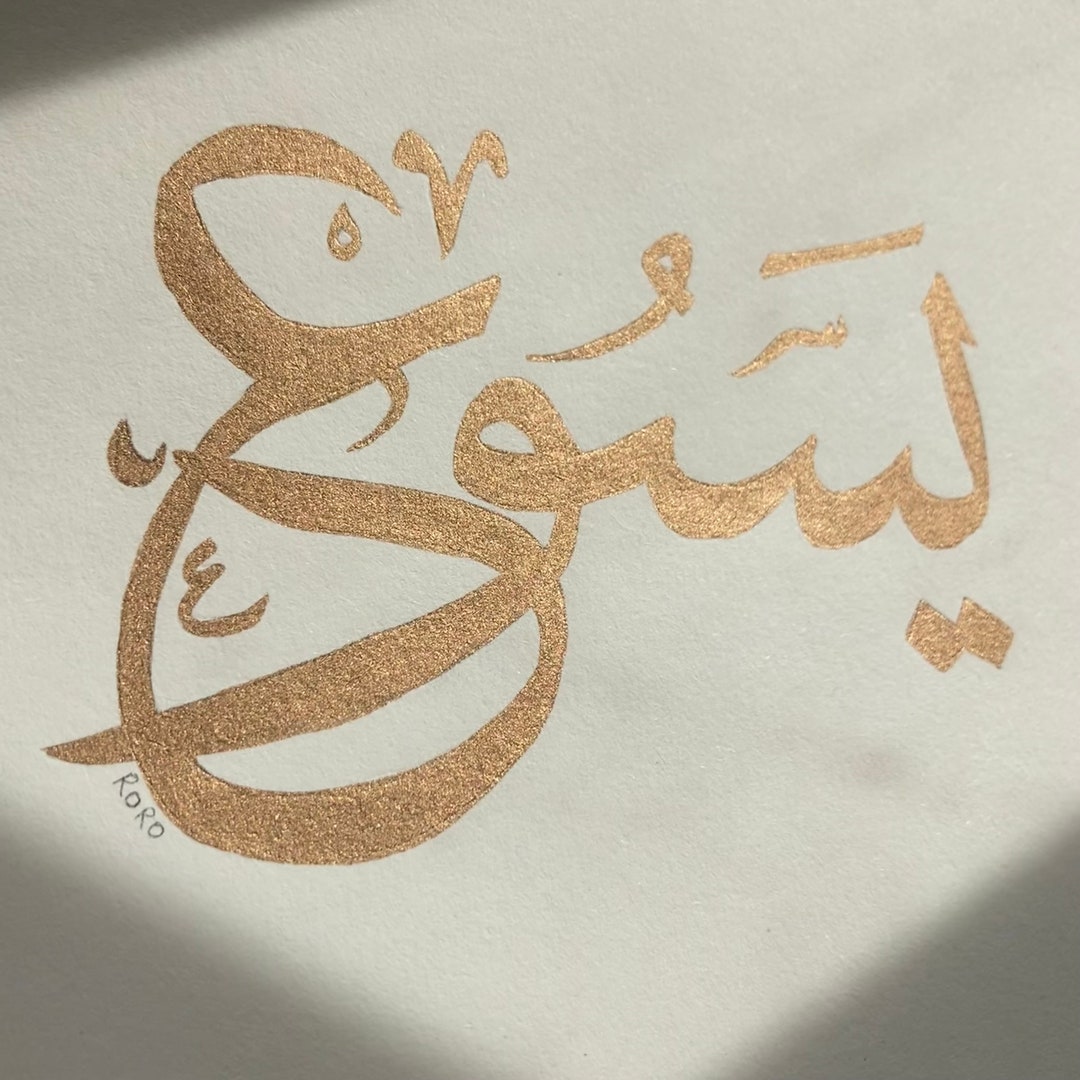 يَسُوع
RORO